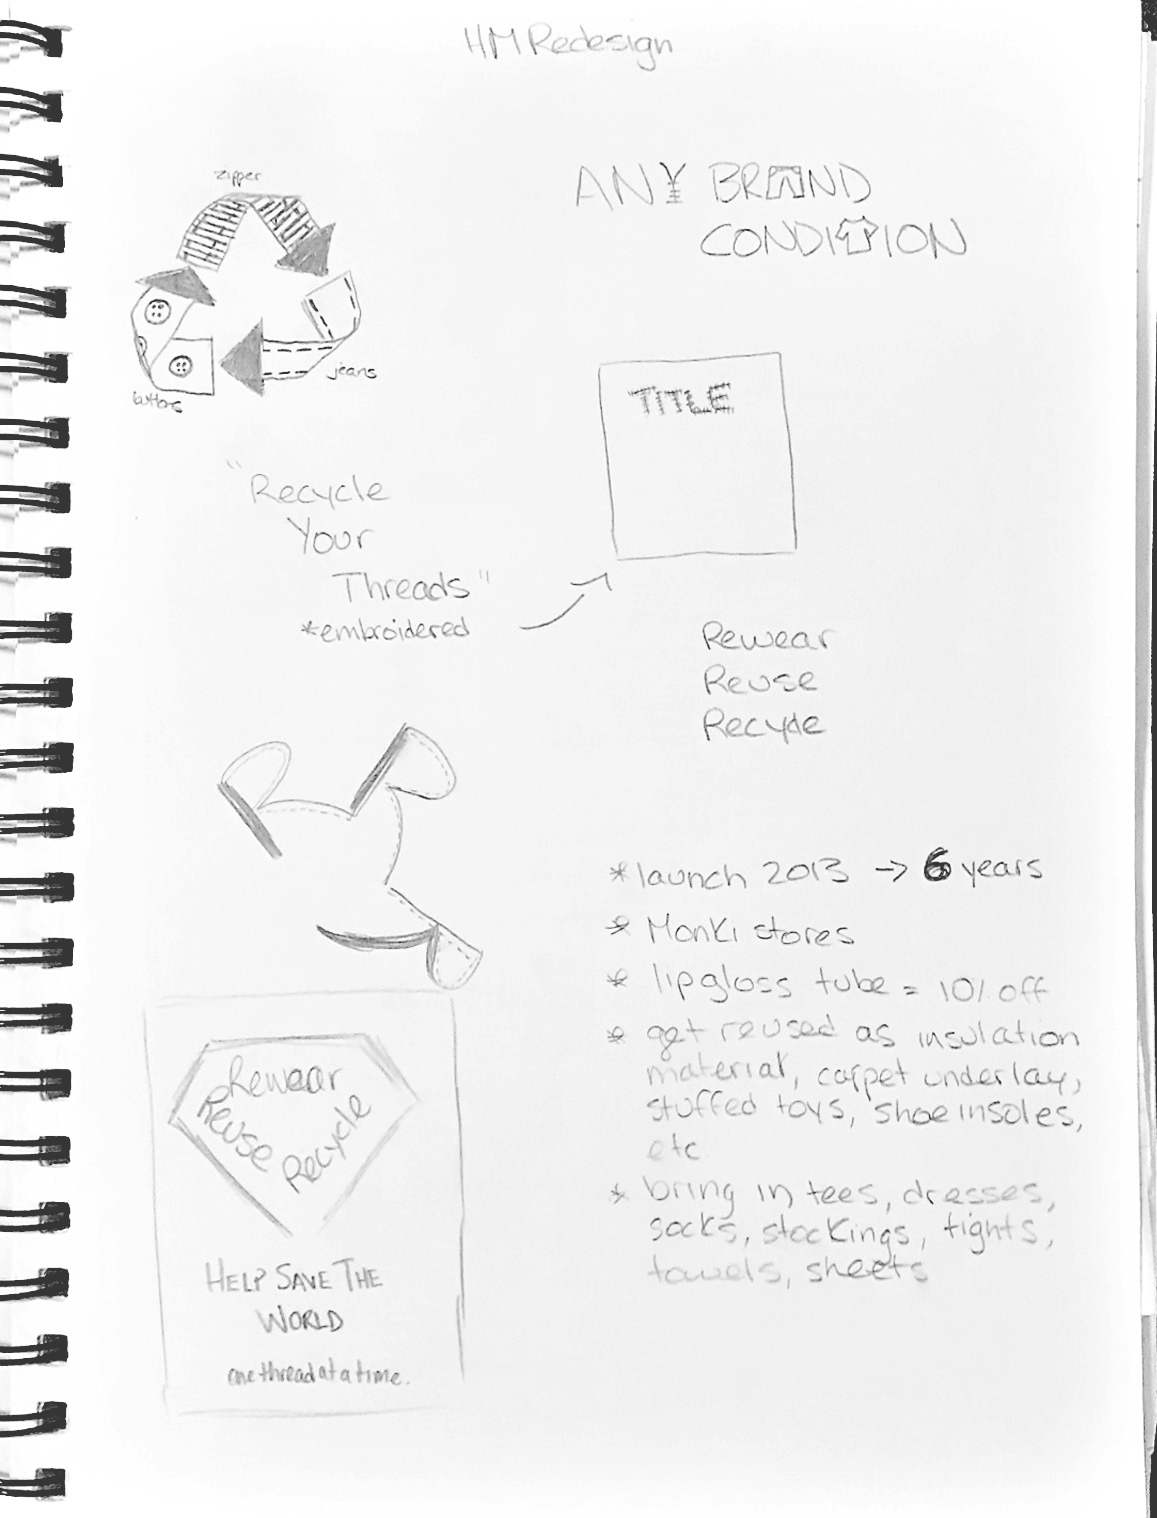 HM Redesign
zipper
jeans
buttons
ANY BRAND
CONDITION
TITLE
"Recycle
Your
Threads"
*embroidered
Rewear
Reuse
Recycle
* launch 2013 → 6 years
* Monki stores
* lipgloss tube = 10% off
* get reused as insulation
material, carpet underlay,
stuffed toys, shoe insoles,
etc
* bring in tees, dresses,
socks, stockings, tights,
towels, sheets
Rewear
Reuse
Recycle
HELP SAVE THE
WORLD
one thread at a time.